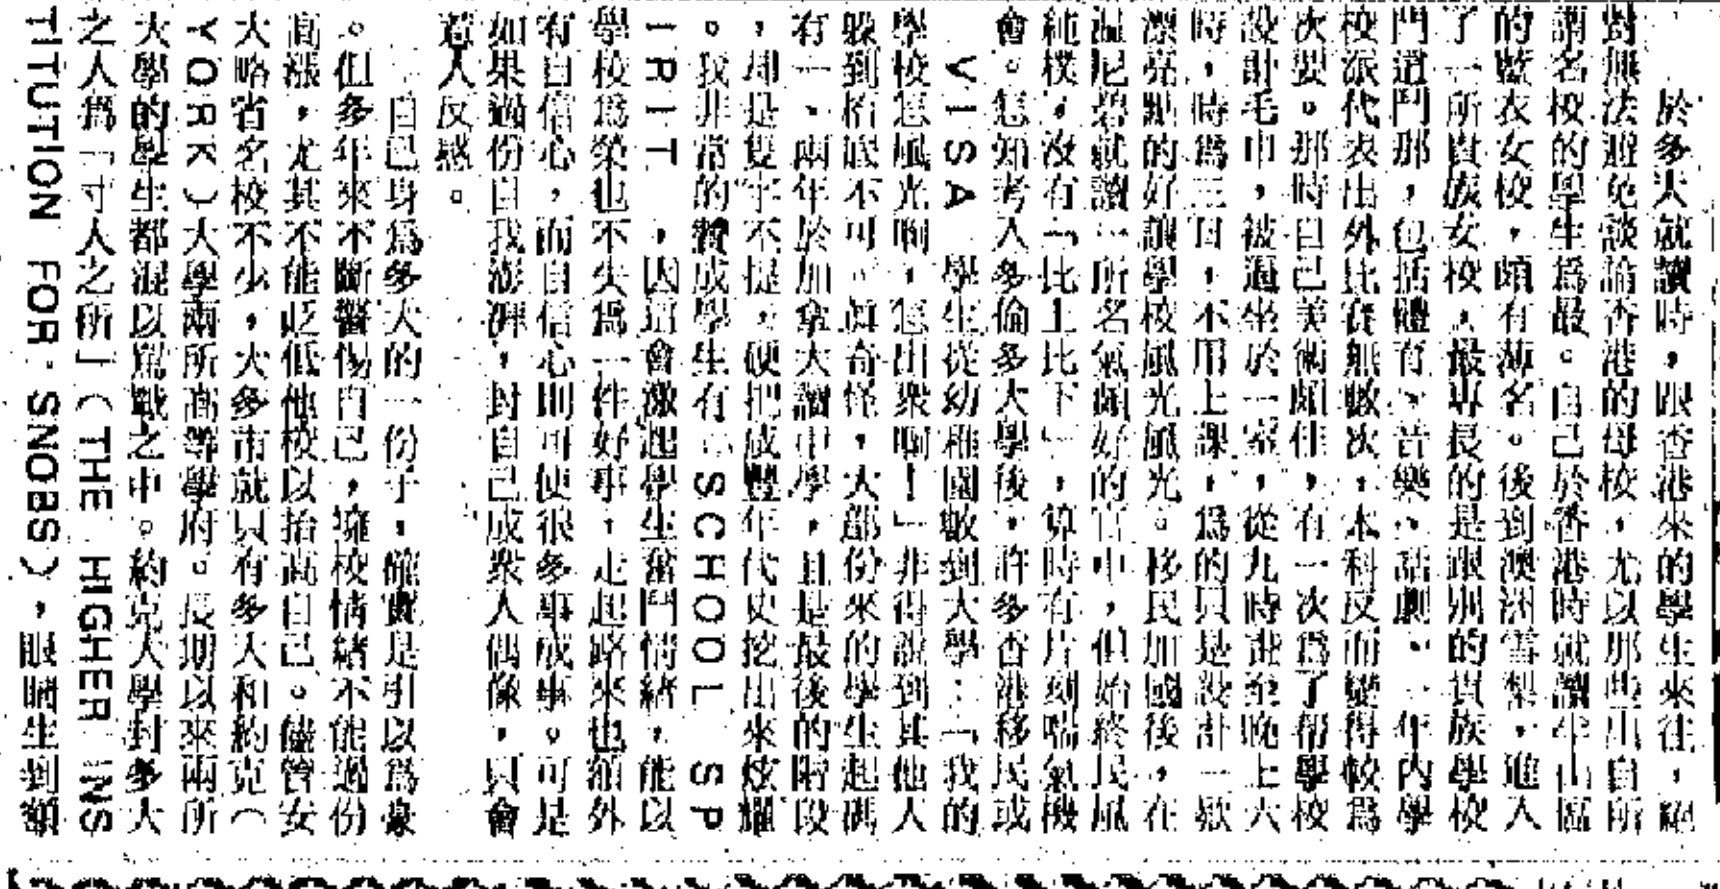 於多大就讀時,跟香港來的學生來往,絕
對無法避免談論香港的母校,尤以那些出自所
謂名校的學生為最。自己於香港時就讀半山區
的藍衣女校,頗有薄名。後到澳洲雪梨,進入
了一所貴族女校,最專長的是跟別的貴族學校
鬥這鬥那,包括體育、音樂、話劇、一年內學
校派代表出外比賽無數次,本科反而變得較為
次要。那時自己美術頗佳,有一次為了幫學校
設計毛巾,被逼坐於一室,從九時 至晚上六
時,時為三日,不用上課,為的只是設計一款
漂亮點的好讓學校風光風光。移民加國後,在
溫尼碧就讀一所名氣頗好的官中,但始終民風
純樸,沒有「比上比下」,算時有片刻喘氣機
會。怎知考入多倫多大學後,許多香港移民或
VISA 學生從幼稚園數到大學:「我的
學校怎風光啊,怎出衆啊!」非得說到其他人
躲到枱底不可。真奇怪,大部份來的學生起碼
有一、兩年於加拿大讀中學,且是最後的階段
,却是隻字不提,硬把成豐年代史挖出來炫耀
。我非常的贊成學生有 SCHOOL SP
IRIT ,因這會激起學生奮鬥情緒,能以
學校為榮也不失為一件好事,走起路來也額外
有自信心,而自信心則可使很多事成事。可是
如果過份自我澎湃,封自己成衆人偶像,只會
惹人反感。
自己身為多大的一份子,確實是引以為豪
。但多年來不斷警惕自己,擁校情緒不能過份
高漲,尤其不能貶低他校以抬高自己。儘管安
大略省名校不少,大多市就只有多大和約克(
YORK)大學兩所高等學府。長期以來兩所
大學的學生都混以罵戰之中。約克大學封多大
之人為「寸人之所」(THE HIGHER INS
TITUTION FOR SNOBS),眼睛生到額